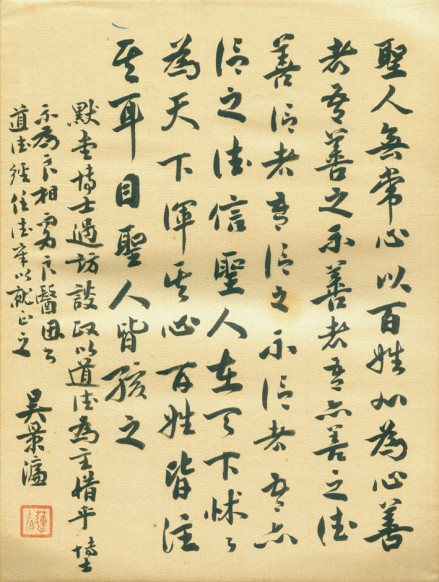 聖人無常心以百姓心為心善
者吾善之不善者吾亦善之德
善信者吾信之不信者吾亦
信之德信聖人在天下怵々
為天下渾其心百姓皆注
其耳目聖人皆孩之
默博士過訪談政以道德為主惜乎博士
不為良相而為良醫因書
道德經任德章以就正之
吳景濂
蓮伯